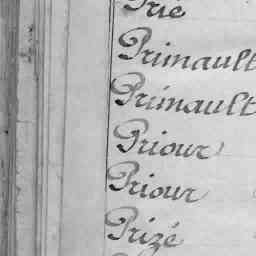 Prié
Primault
Primault
Priour
Priour
Prizé